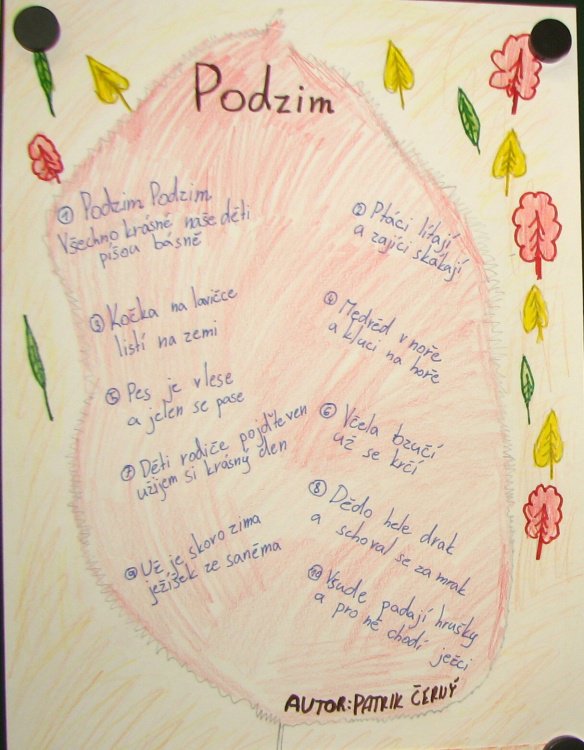 Podzim
① Podzim Podzim
Všechno krásné naše děti
píšou básně
② Ptáci lítají
a zajíci skákají
③ Kočka na lavičce
listí na zemi
④ Medvěd v noře
a kluci na hoře
⑤ Pes je v lese
a jelen se pase
⑥ Včela bzučí
už se krčí
⑦ Děti rodiče pojďte ven
užijem si krásný den
⑧ Dědo hele drak
a schoval se za mrak
⑨ Už je skoro zima
ježíšek ze saněma
⑩ Všude padají hrušky
a pro ně chodí ježci
AUTOR: PATRIK ČERNÝ